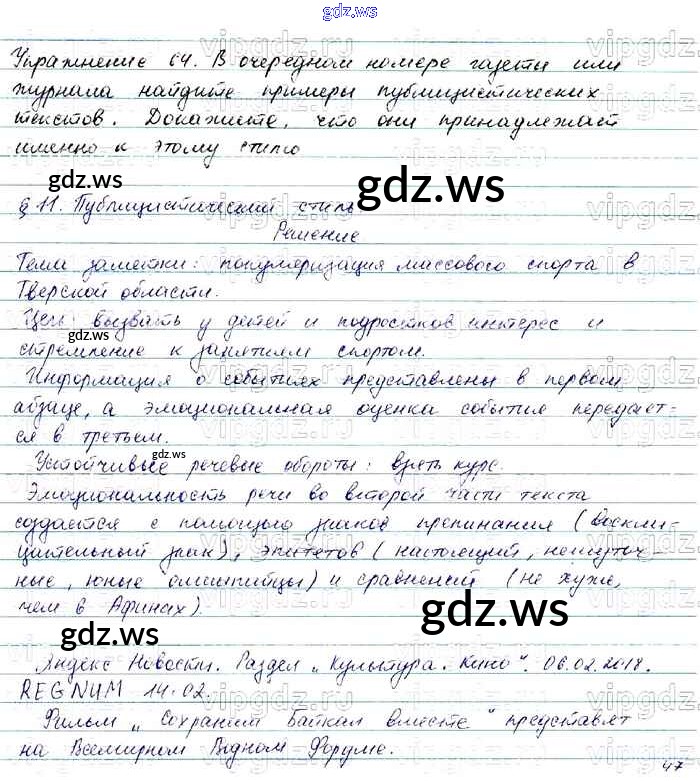 gdz.ws
Упражнение 64. В очередном номере газеты или
журнала найдите примеры публицистических
текстов. Докажите, что они принадлежат
именно к этому стилю
gdz.ws
gdz.ws
§ 11. Публицистический стиль
Решение
Тема заметки: популяризация массового спорта в
Тверской области.
Цель: вызвать у детей и подростков интерес и
стремление к занятиям спортом.
gdz.ws
Информация о событиях представлены в первом
абзаце, а эмоциональная оценка события передает-
ся в третьем.
gdz.ws
Устойчивые речевые обороты: взять курс.
Эмоциональность речи во второй части текста
создается с помощью знаков препинания (воскли-
цательный знак), эпитетов (настоящий, нешуточ-
ные, юные олимпийцы) и сравнений (не хуже,
чем в Афинах).
gdz.ws
gdz.ws
Яндекс Новости. Раздел „Культура. Кино". 06.02.2018.
REGNUM 14.02.
Фильм „Сохраним Байкал вместе" представят
на Всемирном Водном Форуме.
47